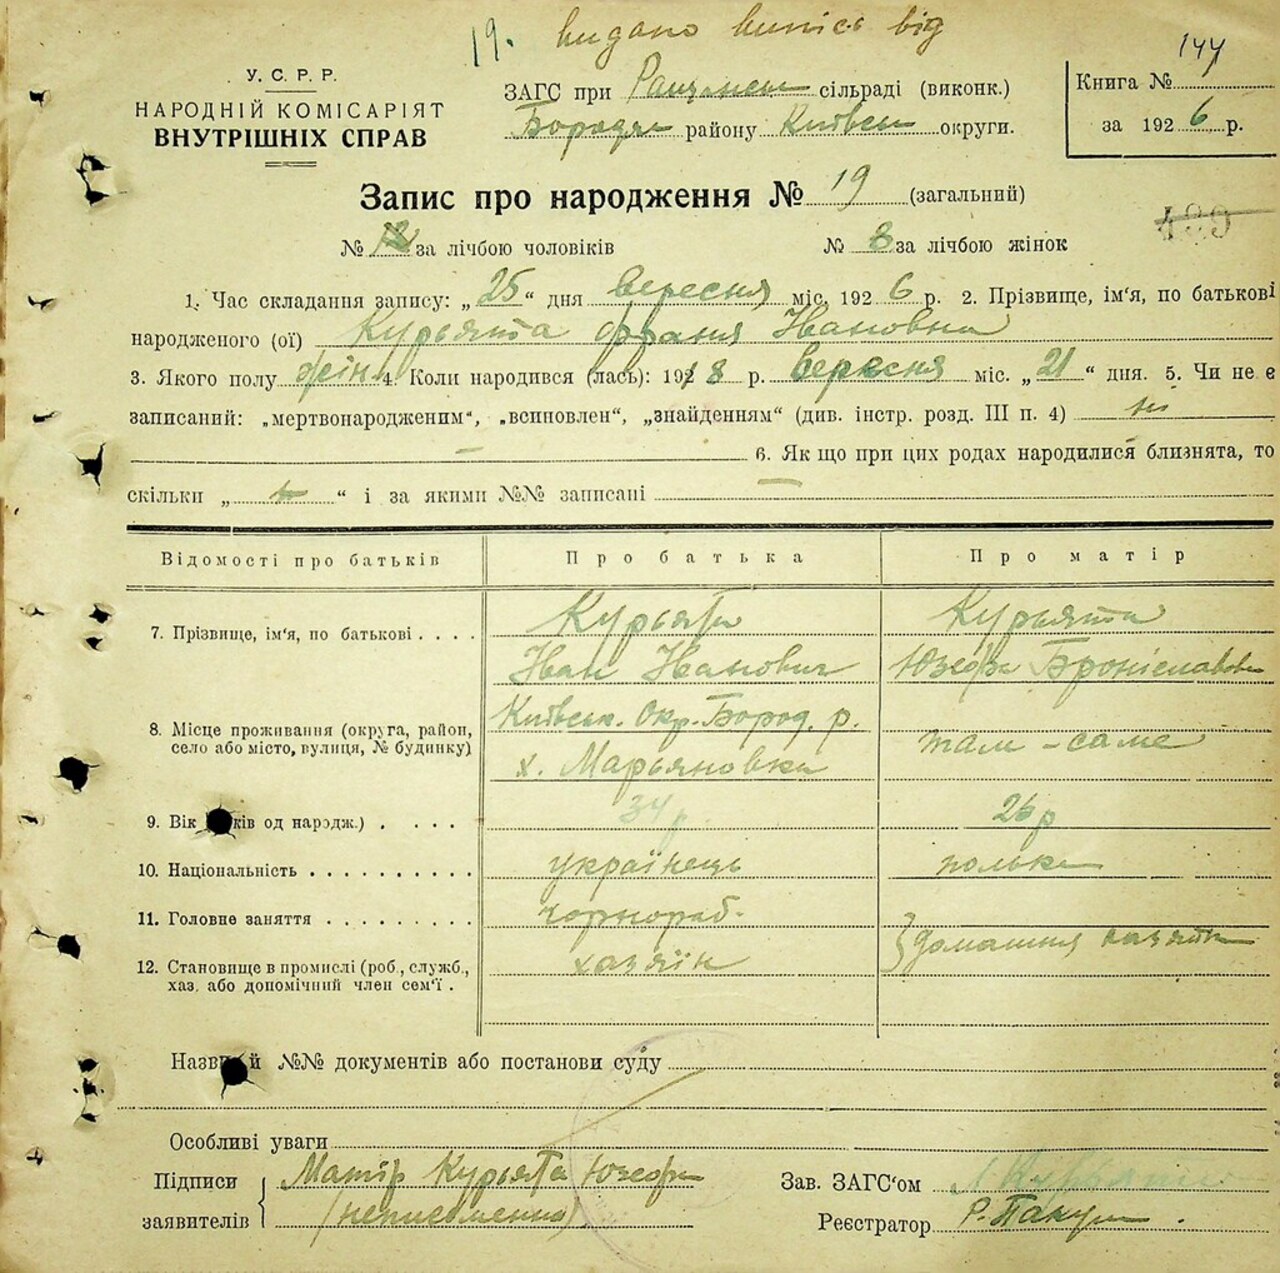 19. видано випис від
У. С. Р. Р.
НАРОДНІЙ КОМІСАРІЯТ
ВНУТРІШНІХ СПРАВ
ЗАГС при сільраді (виконк.)
Бородян району Київськ округи.
Книга № 147
за 1926 р.
Запис про народження № 19 (загальний)
№ за лічбою чоловіків № 8 за лічбою жінок
439
1. Час складання запису: „25“ дня вересня міс. 1926 р. 2. Прізвище, ім'я, по батькові
народженого (ої) Курьята Франя Івановна
3. Якого полу жін 4. Коли народився (лась): 1918 р. вересня міс. „21“ дня. 5. Чи не є
записаний: „мертвонародженим“, „всиновлен“, „знайденням“ (див. інстр. розд. III п. 4) ні
— 6. Як що при цих родах народилися близнята, то
скільки „ “ і за якими №№ записані —
Відомості про батьків Про батька Про матір
7. Прізвище, ім'я, по батькові . . . . Курьята Курьята
Іван Іванович Юзефа Броніславовн
8. Місце проживання (округа, район,
село або місто, вулиця, № будинку)
Київськ. Окр. Бород. р.
х. Марьяновка
там - саме
9. Вік ків од народж.) . . . . 34 р. 26 р
10. Національність . . . . . . . . . . українець полька
11. Головне заняття . . . . . . . . . чорнороб. домашня хазяйк
12. Становище в промислі (роб., служб.,
хаз. або допомічний член сем'ї .
хазяїн
Назв й №№ документів або постанови суду
Особливі уваги
Підписи
заявителів
Матір Курьята Юзефа
(неписьменна)
Зав. ЗАГС'ом
Реєстратор Р. Пакул